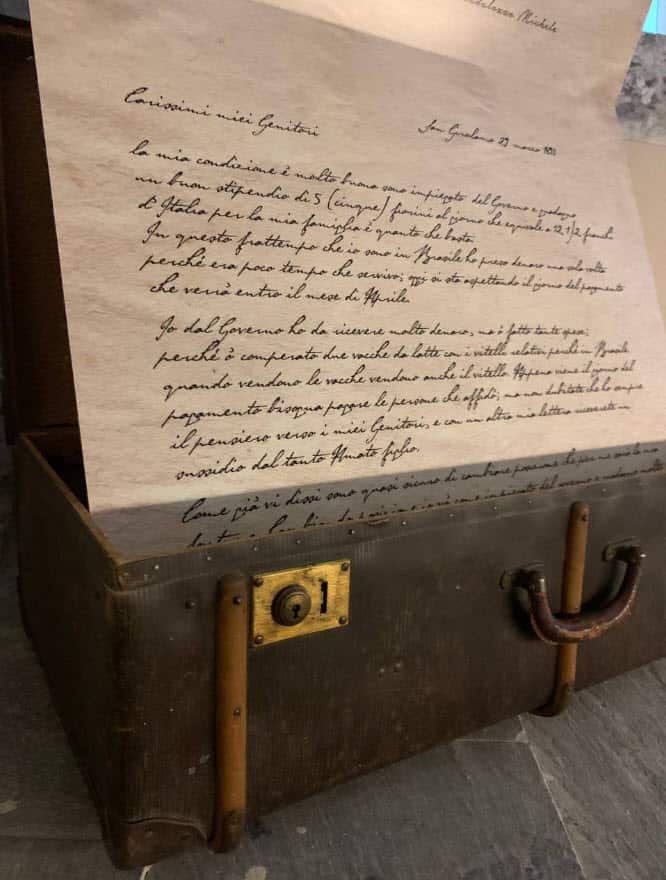 Michele
Carissimi miei Genitori
San Girolamo 23 marzo
la mia condizione è molto buona sono impiegato del Governo e
un buon stipendio di 5 (cinque) fiorini al giorno che equivale a 12.1/2 franchi
d'Italia per la mia famiglia è quanto che basta.
In questo frattempo che io sono in Brasile ho preso denaro una sola volta
perché era poco tempo che servivo; oggi si sta aspettando il giorno del pagamento
che verrà entro il mese di Aprile.
Io dal Governo ho da ricevere molto denaro, ma ò fatto tante spese;
perché ò comperato due vacche da latte con i vitelli relativi perché in Brasile
quando vendono le vacche vendono anche il vitello. Appena viene il giorno del
pagamento bisogna pagare le persone che affidò; ma non dubitate che ho sempre
il pensiero verso i miei Genitori, e con un altra mia lettera riceverete un
sussidio dal tanto Amato figlio.
Come già vi dissi sono quasi sicuro di cambiare posizione che per me sarà la mia